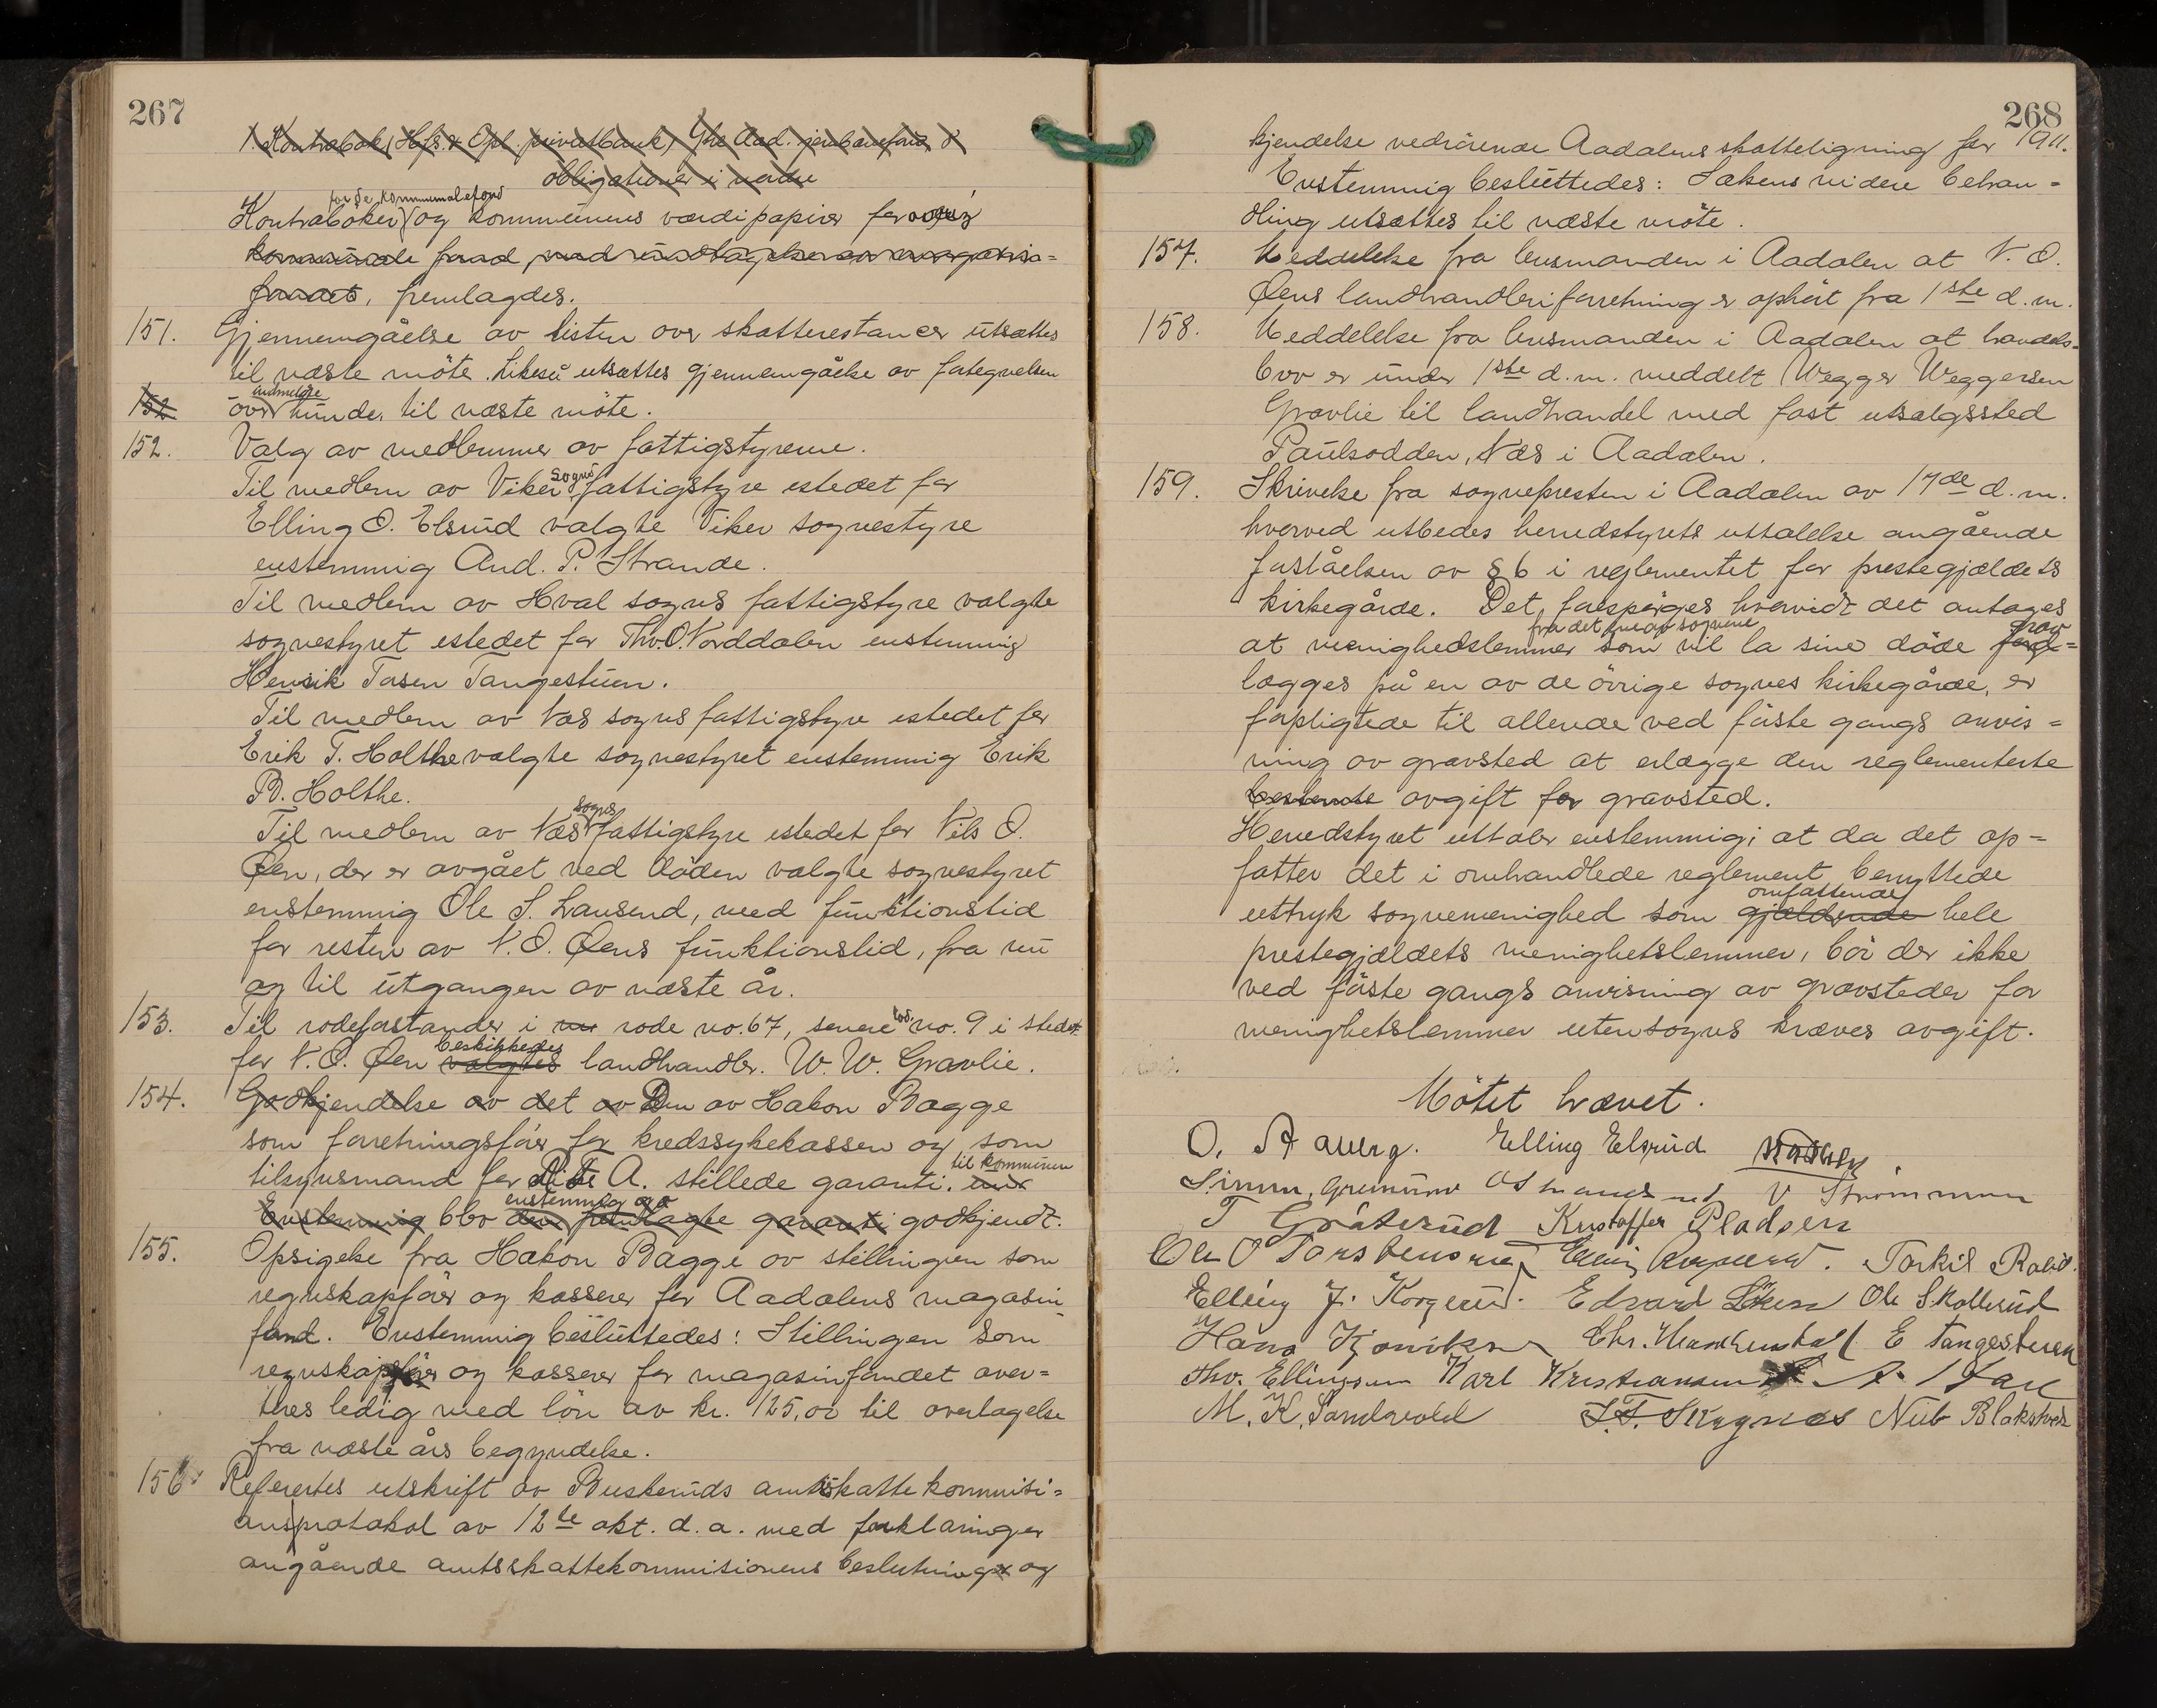 267
Kontrabok, Hfs. & Opl. privatbank,
obligationer i
for de kommunale fond
Kontrabøker og kommunens værdipapirer for
kommunale fond, med undtagelse av magasin=
fondet, fremlagdes.
151. Gjennemgåelse av listen over skatterestancer utsættes
til næste möte. Likeså utsættes gjennemgåelse av fortegnelsen
anmeldte
152 over hunde, til næste möte.
152. Valg av medlemmer av fattigstyrerne.
sogns
Til medlem av Viker fattigstyre istedet for
Elling O. Elsrud valgte Viker sognestyre
enstemmig And. P. Strande.
Til medlem av Hval sogns fattigstyre valgte
sognestyret istedet for Thv. O. Norddalen enstemmig
Henrik Tosen Tangestuen.
Til medlem av Næs sogns fattigstyre istedet for
Erik T. Holthe valgte sognestyret enstemmig Erik
B. Holthe.
sogns
Til medlem av Næs fattigstyre istedet for Nils O.
Øen, der er avgået ved döden valgte sognestyret
enstemmig Ole S. Lausend, med funktionstid
for resten av N. O. Øens funktionstid, fra nu
og til utgangen av næste år.
153. Til rodeforstander i rode no. 67, senere no. 9 i stedet
beskikkedes
for N. O. Øen valgtes landhandler. W. W. Gravlie.
154. Godkjendelse av det av Den av Hakon Bagge
som forretningsförer for kredssykekassen og som
til kommunen
tilsynsmand for A. stillede garanti.
enstemmig
Enstemmig blev den fremlagte garanti godkjendt.
155. Opsigelse fra Hakon Bagge av stillingen som
regnskapsförer og kasserer for Aadalens magasin
fond. Enstemmig besluttedes: Stillingen som
regnskapsförer og kasserer for magasinfondet aver=
teres ledig med lön av kr. 125,00 til overtagelse
fra næste års begyndelse.
156. Refereres utskrift av Buskeruds amtsskattekommisi=
onsprotokol av 12te okt. d. a. med forklaringer
angående amtsskattekommisionens beslutning og
268
kjendelse vedrörende Aadalens skatteligning for 1911.
Enstemmig besluttedes: Sakens videre behan=
dling utsættes til næste möte.
157. Meddelelse fra lensmanden i Aadalen at N. O.
Øens landhandleriforretning er ophört fra 1ste d. m.
158. Meddelelse fra lensmanden i Aadalen at handels=
brev er under 1ste d. m. meddelt Wegger Weggersen
Gravlie til landhandel med fast utsalgssted
Paulsodden, Næs i Aadalen.
159. Skrivelse fra sognepresten i Aadalen av 17de d. m.
hvorved utbedes herredstyrets uttalelse angående
forståelsen av § 6 i reglementet for prestegjældets
kirkegårde. Det forespörges hvorvidt det antages
fra det ene av sognene grav
at menighedslemmer som vil la sine döde
lægges på en av de övrige sognes kirkegårde, er
forpligtede til allerede ved förste gangs anvis=
ning av gravsted at erlægge den reglementerte
bestemte avgift for gravsted.
Herredstyret uttaler enstemmig; at da det op=
fatter det i omhandlede reglement benyttede
omfattende
uttryk sognemenighed som gjældende hele
prestegjældets menighetslemmer, bör der ikke
ved förste gangs anvisning av gravsteder for
menighetslemmer utensogns kræves avgift.
Mötet hævet.
O. Aaberg. Elling Elsrud
V Strømmen
T Gråterud Kristoffer Pladsen
Ole O Torsbensrud Torkil Rolid.
Elling J. Korgerud. Edvard Ole Skollerud
Hans E Tangestuen
Thv. Ellingsen Karl Kristiansen
M. K. Sandvold Nub